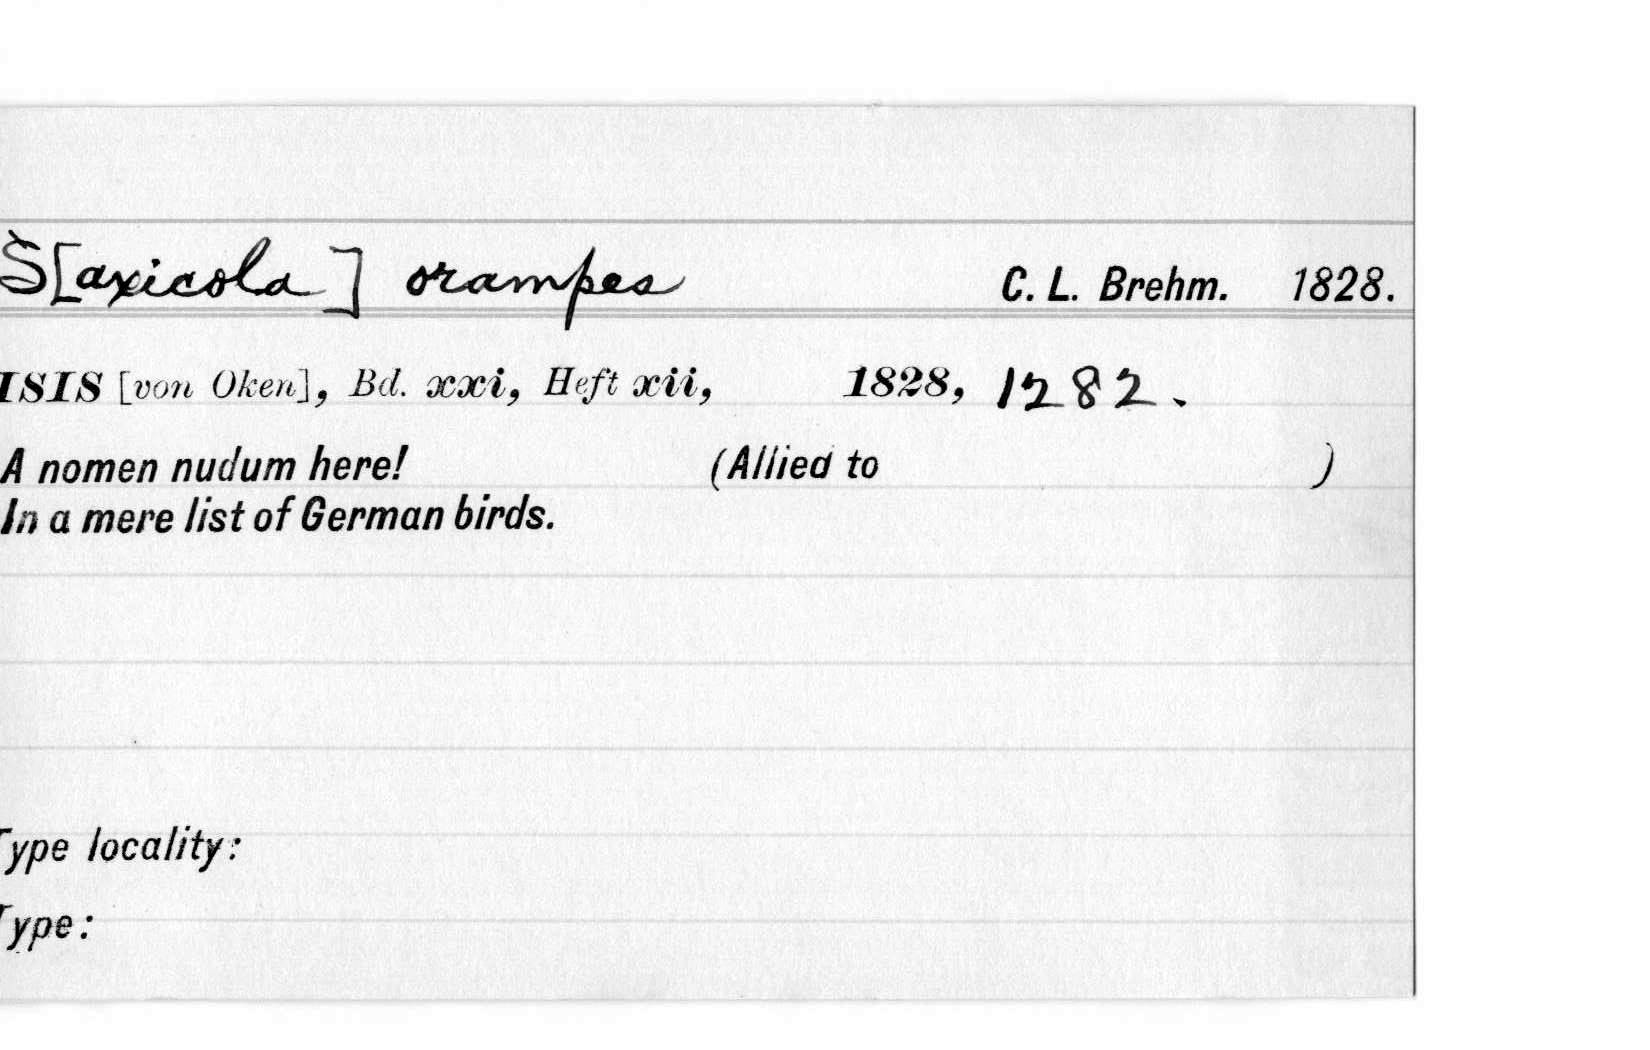 S[axicola] orampes C. L. Brehm. 1828.
ISIS [von Oken], Bd. xxi, Heft xii, 1828, 1282.
A nomen nudum here! (Allied to )
In a mere list of German birds.
Type locality:
Type: